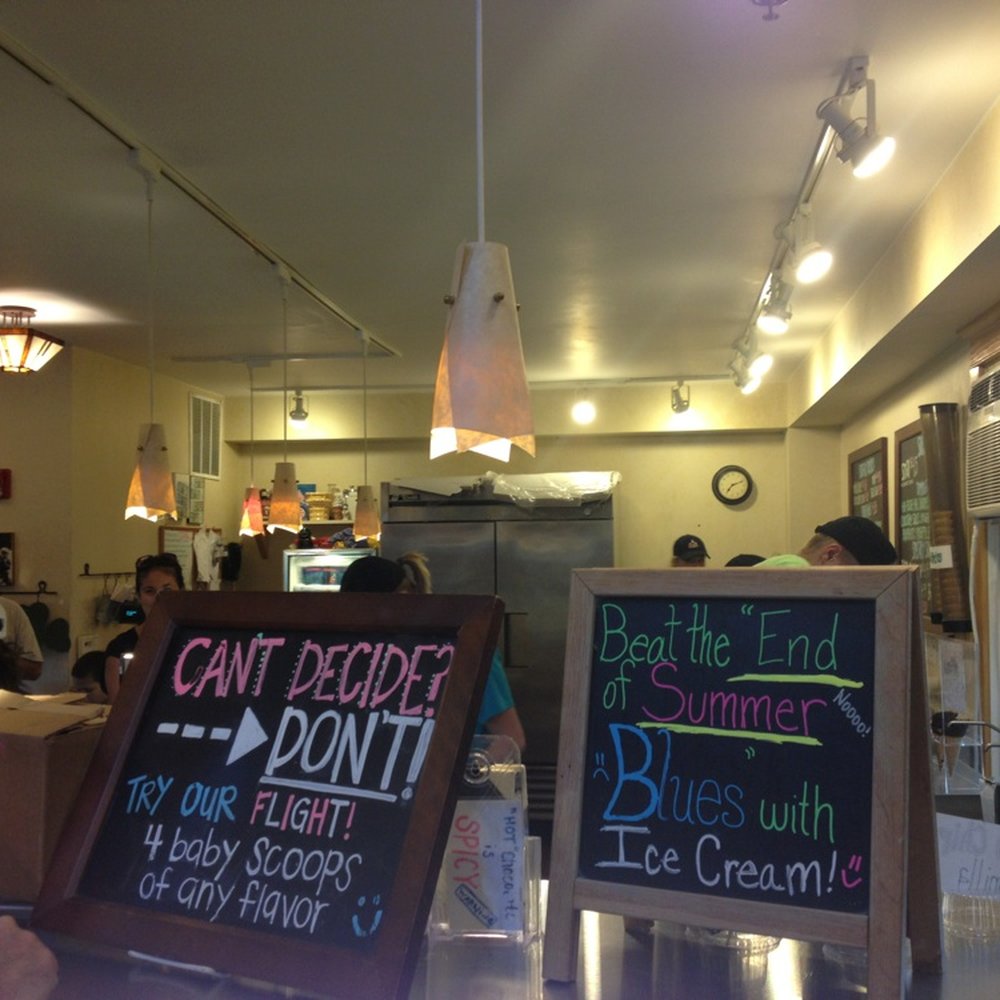 CAN'T DECIDE?
DON'T!
TRY OUR FLIGHT!
4 baby SCOOPS
of any flavor
Beat the "End
of Summer
Noooo!
Blues" with
Ice Cream!
"HOT"
is
SPICY